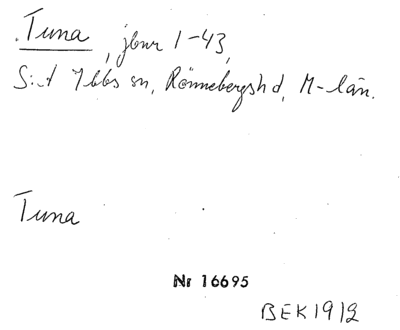 Tuna, jbnr 1-43,
S:t Ibbs sn, Rönnebergs hd, M-län.
Tuna
Nr 16695
BEK 1912